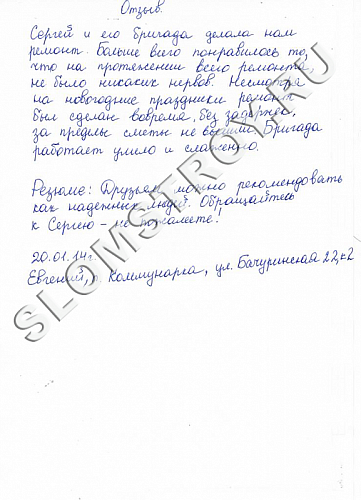 Отзыв.
Сергей и его бригада делала нам
ремонт. Больше всего понравилось то,
что на протяжении всего ремонта
не было никаких нервов. Несмотря
на новогодние праздники ремонт
был сделан вовремя, без задержек,
за пределы сметы не вышли. Бригада
работает умело и слаженно.
Резюме: Друзьям можно рекомендовать
как надежных людей. Обращайтесь
к Сергею - не пожалеете!
20.01.14г.
Евгений, п. Коммунарка, ул. Бачуринская 22,к2
SLOMSTROY.RU